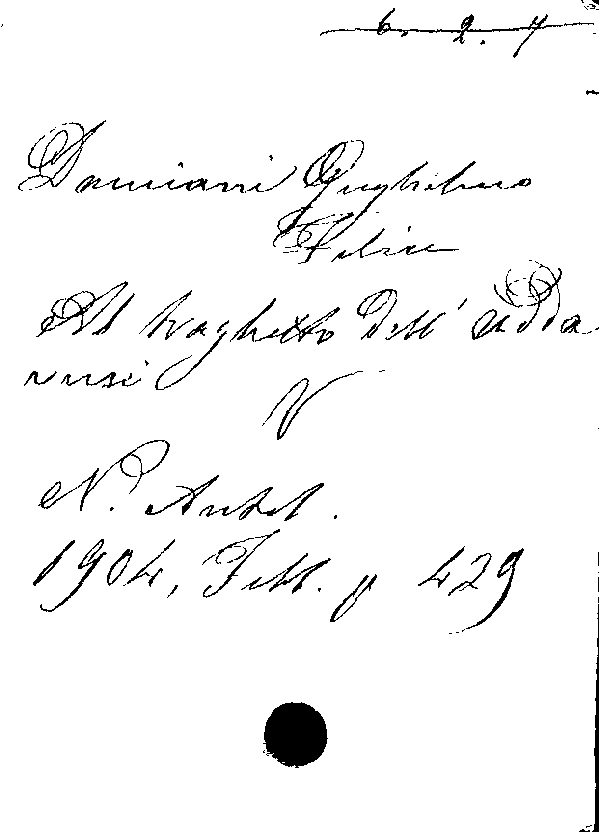 6. 2. 7
Damiani Guglielmo
Felice
Al traghetto dell' Adda
versi
N. Antol.
1904, Febb. p 429